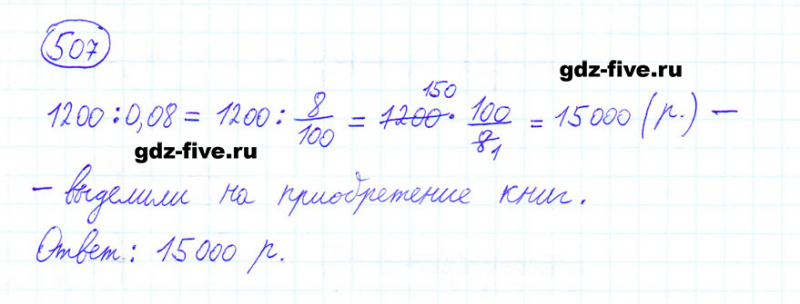 507
gdz-five.ru
1200 : 0,08 = 1200 : 8/100 = 1200 150 · 100/8 1 = 15000 (р.) —
gdz-five.ru
— выделили на приобретение книг.
gdz-five.ru
Ответ: 15000 р.